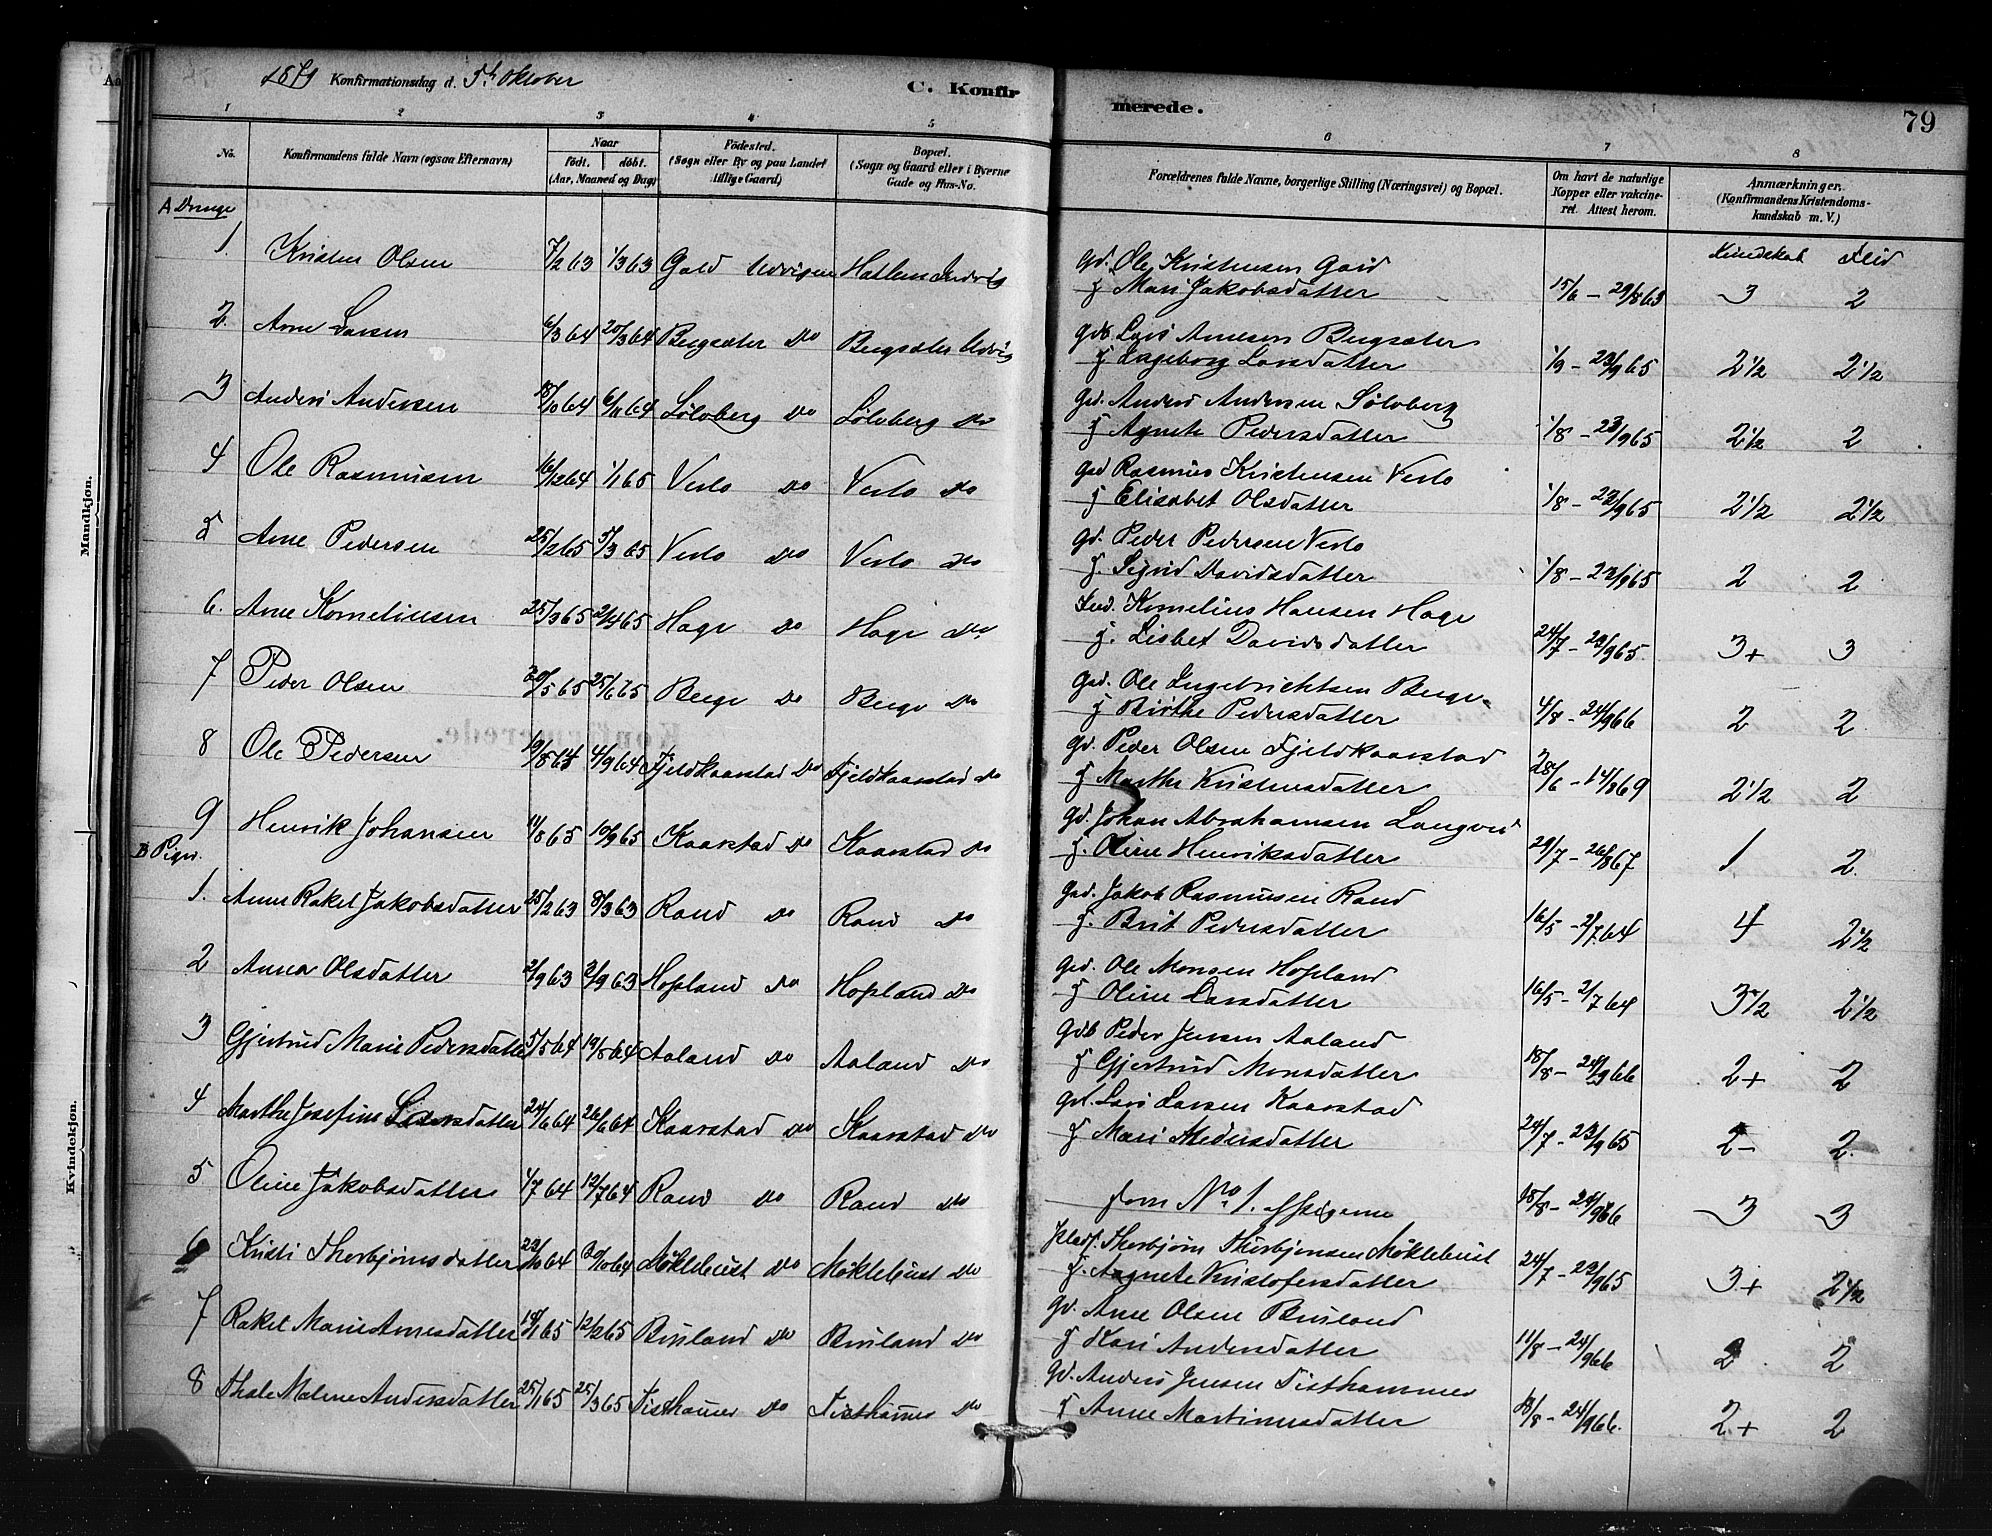 1879 Konfirmationsdag d. 5te Oktober
C. Konfirmerede.
79
1 2 3 4 5 6 7 8
No.
Konfirmandens fulde Navn (ogsaa Efternavn)
Naar
født. døbt.
(Aar, Maaned og Dag)
Fødested.
(Sogn eller By og paa Landet tillige Gaard)
Bopæl.
(Sogn og Gaard eller i Byerne Gade og Hus-No.
Forældrenes fulde Navne, borgerlige Stilling (Næringsvei) og Bopæl.
Om havt de naturlige Kopper eller vakcineret. Attest herom.
Anmærkninger.
(Konfirmandens Kristendomskundskab m. V.)
Mandkjøn.
Kvindekjøn.
A Drenge
Kundskab Flid
1. Kristen Olsen 7/2 63 1/3 63 Gald Indvigen Hatlem Indvig gd. Ole Kristensen Gald
f Mari Jakobsdatter 15/6 - 29/8 63 3 2
2. Arne Larsen 6/3 64 20/3 64 Bergsæter do Bergsæter Indvig gdb Lars Arnesen Bergsæter
f Ingeborg Larsdatter 1/9 - 23/9 65 2 1/2 2 1/2
3 Anders Andersen 18/10 64 6/11 64 Sølvberg do Sølvberg do gd. Anders Andersen Sølvberg
f Agnete Pedersdatter 1/8 - 23/9 65 2 1/2 2
4 Ole Rasmusen 16/12 64 1/1 65 Veslo do Veslo do gd Rasmus Kristensen Veslo
f Elisabet Olsdatter 1/8 - 23/9 65 2 1/2 2 1/2
5 Arne Pedersen 25/2 65 5/3 65 Veslo do Veslo do gd. Peder Pedersen Veslo
f. Sigrid Davidsdatter 1/8 - 23/9 65 2 2
6. Arne Korneliusen 25/3 65 2/4 65 Hage do Hage do Kornelius Hansen Hage
f. Lisbet Davidsdatter 24/7 - 23/9 65 3+ 3
7 Peder Olsen 30/5 65 25/6 65 Berge do Berge do gd. Ole Ingebrichtsen Berge
f Birthe Pedersdatter 4/8 - 24/9 66 2 2
8 Ole Pedersen 19/8 64 4/9 64 Fjeldkaarstad do Fjeldkaarstad do gd. Peder Olsen Fjeldkaarstad
f Marthe Kristensdatter 28/6 - 14/8 69 2 1/2 2
9 Henrik Johansen 11/8 65 10/9 65 Kaarstad do Kaarstad do gd. Johan Abrahamsen
f. Oline Henriksdatter 29/7 - 26/8 67 1 2
B Piger.
1. Anne Rakel Jakobsdatter 25/2 63 8/3 63 Rand do Rand do gd. Jakob Rasmusen Rand
f. Brit Pedersdatter 16/5 - 2/7 64 4 2 1/2
2 Anna Olsdatter 2/9 63 2/9 63 Hopland do Hopland do gd. Ole Monsen Hopland
f Oline Larsdatter 16/5 - 2/7 64 3 1/2 2 1/2
3 Gjertrud Marie Pedersdatter 5/5 64 19/5 64 Aaland do Aaland do gdb Peder Jensen Aaland
f Gjertrud Monsdatter 18/8 - 24/9 66 2+ 2
4 Marthe Josefine Larsdatter 24/6 64 26/6 64 Kaarstad do Kaarstad do gd. Lars Larsen Kaarstad
f Mari 24/7 - 23/9 65 2- 2
5 Oline Jakobsdatter 4/7 64 12/7 64 Rand do Rand do som No 1. af Pigerne 18/8 - 24/9 66 3 3
6 Kristi Thorbjørnsdatter 23/10 64 30/10 64 Møklebust do Møklebust do Thorbjørn Thorbjørnsen Møklebust
f. Agnete Kristofersdatter 24/7 - 23/9 65 3+ 2 1/2
7 Rakel Marie Arnesdatter 18/1 65 12/2 65 Brisland do Brisland do gd. Arne Olsen Brisland
f Kari Andersdatter 11/8 - 24/9 66 2 2
8 Thale Malene Andersdatter 25/1 65 25/3 65 Tisthamer do Tisthamer do gd. Anders Jensen Tisthammer
f Anne Martinusdatter 18/8 - 24/9 66. 2+ 2